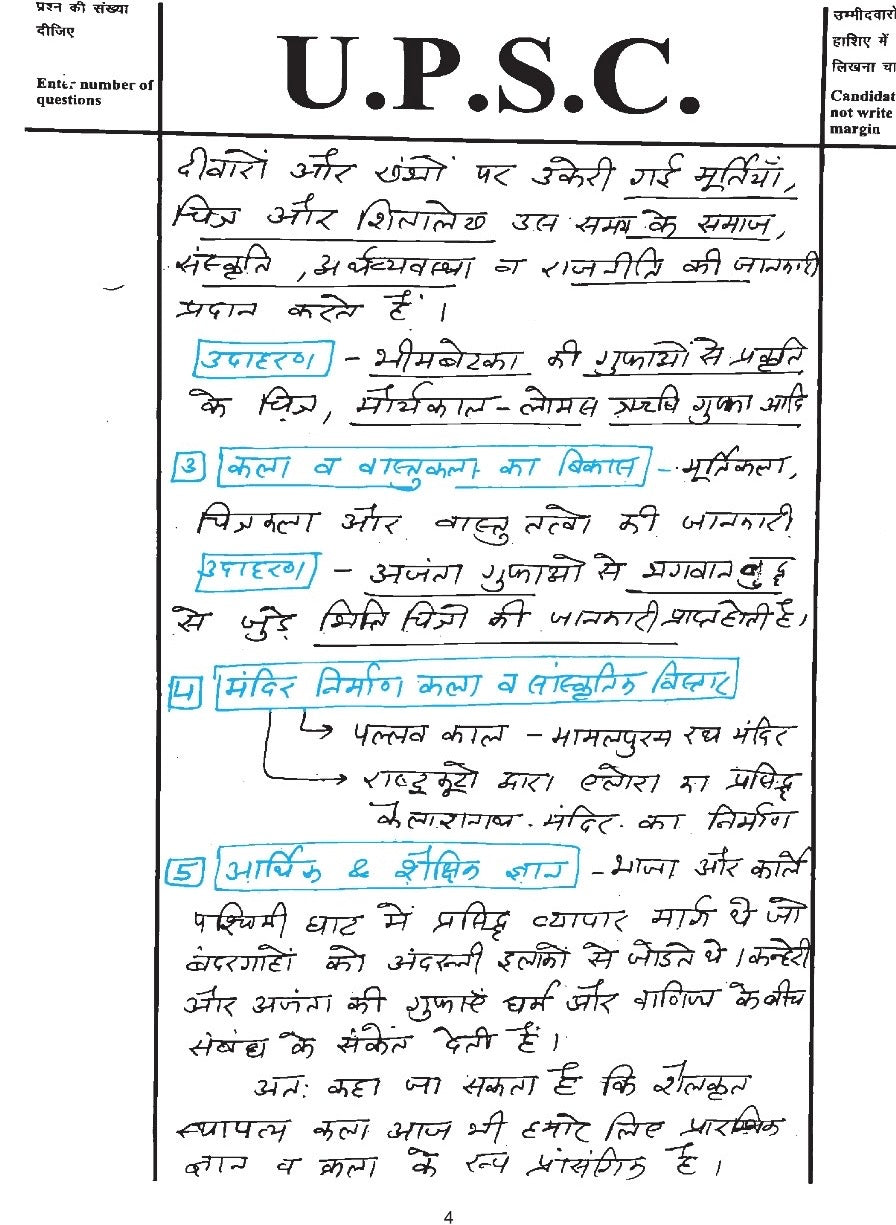 प्रश्न की संख्या
दीजिए
Enter number of
questions
U.P.S.C.
उम्मीदवारों
हाशिए में
लिखना चा
Candidat
not write
margin
दीवारों और खंभों पर उकेरी गई मूर्तियाँ,
चित्र और शिलालेख उस समय के समाज,
संस्कृति, अर्थव्यवस्था व राजनीति की जानकारी
प्रदान करते हैं।
उदाहरण - भीमबेटका की गुफाओं से प्रकृति
के चित्र, मौर्यकाल - लोमस ऋषि गुफा आदि
3 कला व वास्तुकला का विकास - मूर्तिकला,
चित्रकला और वास्तु तत्वों की जानकारी
उदाहरण - अजंता गुफाओ से भगवान बुद्ध
से जुड़े भित्ति चित्रों की जानकारी प्राप्त होती है।
4 मंदिर निर्माण कला व सांस्कृतिक विस्तार
पल्लव काल - मामलपुरम रथ मंदिर
राष्ट्रकूटो द्वारा एलोरा का प्रसिद्ध
कैलाशनाथ मंदिर का निर्माण
5 आर्थिक & शैक्षिक ज्ञान - भाजा और कार्ले
पश्चिमी घाट में प्रसिद्ध व्यापार मार्ग थे जो
बंदरगाहों को अंदरूनी इलाकों से जोडते थे। कन्हेरी
और अजंता की गुफाएं धर्म और वाणिज्य के बीच
संबंध के संकेत देती हैं।
अत: कहा जा सकता है कि शैलकृत
स्थापत्य कला आज भी हमारे लिए प्रारम्भिक
ज्ञान व कला के रूप प्रासंगिक है।
4